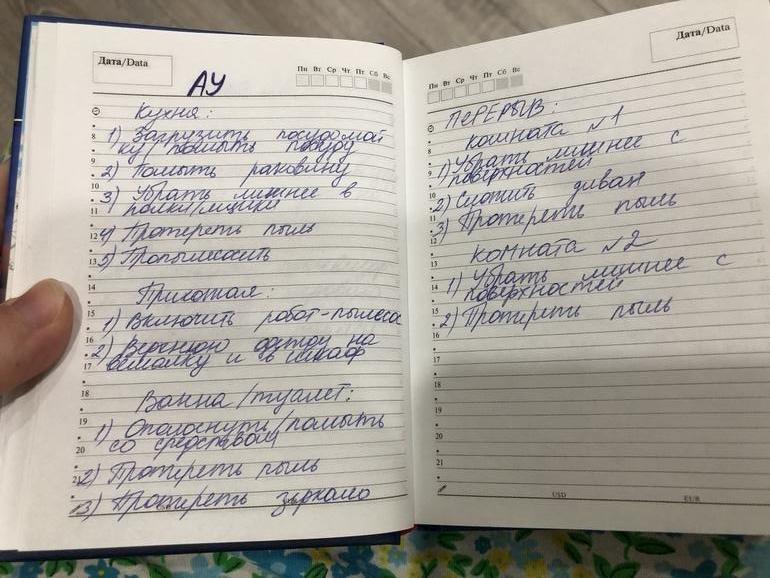 Дата/Data
Пн Вт Ср Чт Пт Сб Вс
АУ
Кухня:
8 1) Загрузить посудомой
ку/помыть посуду
9 2) Помыть раковину
10 3) Убрать лишнее в
11 полки/ящики
12 4) Протереть пыль
13 5) Пропылесосить
14 Прихожая:
15 1) Включить робот-пылесос
16 2) Верхнюю одежду на
17 вешалку и в шкаф
18 Ванна/туалет:
19 1) Ополоснуть/помыть
20 со средством
21 2) Протереть пыль
3) Протереть зеркало
Дата/Data
Пн Вт Ср Чт Пт Сб Вс
ПЕРЕРЫВ:
8 комната №1
9 1) Убрать лишнее с
поверхностей
10 2) Сложить диван
11 3) Протереть пыль
12
13 комната №2
14 1) Убрать лишнее с
15 поверхностей
16 2) Протереть пыль
17
18
19
20
21
USD EUR